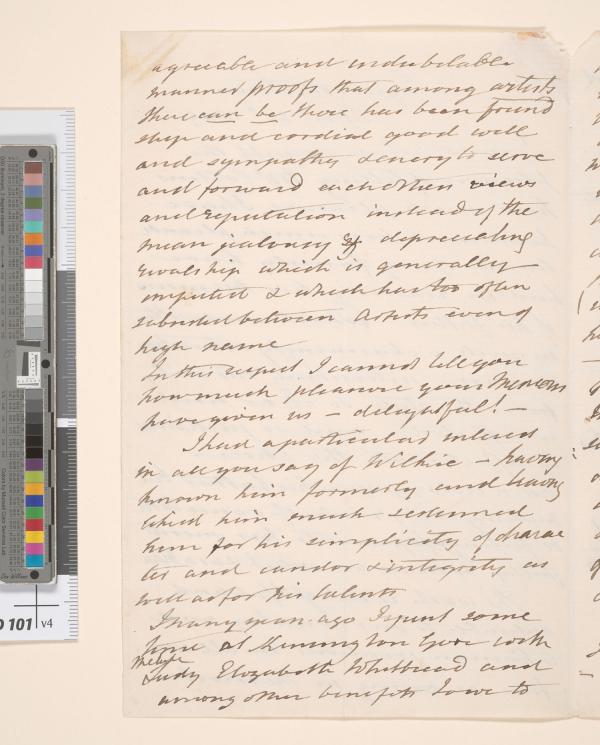 agreeable and indubitable
manner proofs that among artists
there can be there has been friend
ship and cordial good will
and sympathy & energy to serve
and forward each others views
and reputation instead of the
mean jealousy & depreciating
rivalship which is generally
imputed & which has too often
subsisted between Artists even of
high name
In this respect I cannot tell you
how much pleasure your Memoirs
have given us – delightful! –
I had a particular interest
in all you say of Wilkie – having
known him formerly and having
liked him much esteemed
him for his simplicity of charac
ter and candor & integrity as
well as for his talents
Many years ago I spent some
time at Kennington Gore with
Lady Elizabeth Whitbread and
among other benefits I owe to
D 101 v4